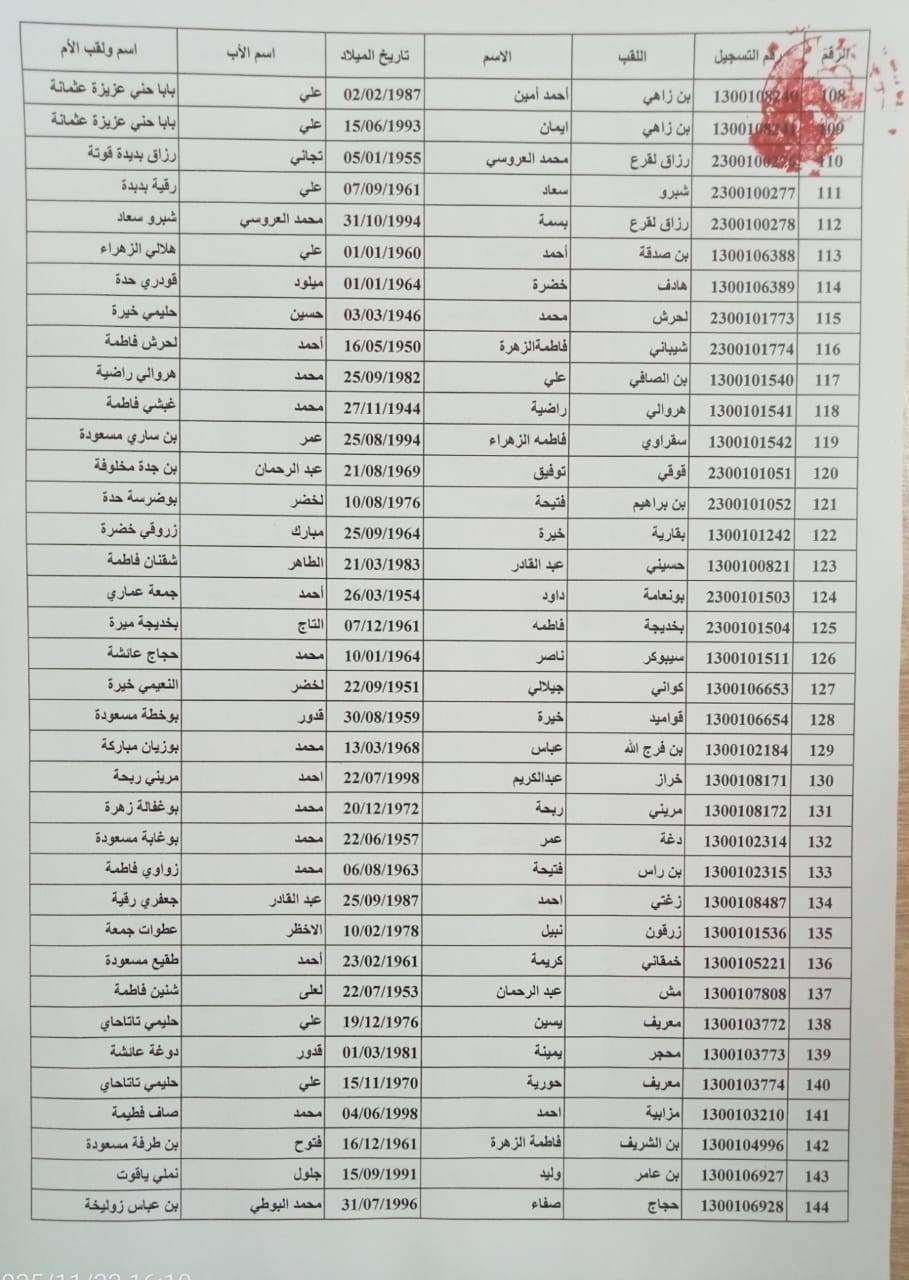 الرقم رقم التسجيل اللقب الاسم تاريخ الميلاد اسم الأب اسم ولقب الأم
108 1300108240 بن زاهي أحمد أمين 02/02/1987 علي بابا حني عزيزة عثمانة
109 1300108241 بن زاهي ايمان 15/06/1993 علي بابا حني عزيزة عثمانة
110 2300100276 رزاق لقرع محمد العروسي 05/01/1955 تجاني رزاق بديدة قوتة
111 2300100277 شبرو سعاد 07/09/1961 علي رقية بديدة
112 2300100278 رزاق لقرع بسمة 31/10/1994 محمد العروسي شبرو سعاد
113 1300106388 بن صدقة أحمد 01/01/1960 علي هلالي الزهراء
114 1300106389 هادف خضرة 01/01/1964 ميلود قودري حدة
115 2300101773 لحرش محمد 03/03/1946 حسين حليمي خيرة
116 2300101774 شيباني فاطمةالزهرة 16/05/1950 أحمد لحرش فاطمة
117 1300101540 بن الصافي علي 25/09/1982 محمد هروالي راضية
118 1300101541 هروالي راضية 27/11/1944 محمد غبشي فاطمة
119 1300101542 سقراوي فاطمه الزهراء 25/08/1994 عمر بن ساري مسعودة
120 2300101051 قوقي توفيق 21/08/1969 عبد الرحمان بن جدة مخلوفة
121 2300101052 بن براهيم فتيحة 10/08/1976 لخضر بوضرسة حدة
122 1300101242 بقارية خيرة 25/09/1964 مبارك زروقي خضرة
123 1300100821 حسيني عبد القادر 21/03/1983 الطاهر شقنان فاطمة
124 2300101503 بونعامة داود 26/03/1954 أحمد جمعة عماري
125 2300101504 بخديجة فاطمه 07/12/1961 التاج بخديجة ميرة
126 1300101511 سيبوكر ناصر 10/01/1964 محمد حجاج عائشة
127 1300106653 كواني جيلالي 22/09/1951 لخضر النعيمي خيرة
128 1300106654 قواميد خيرة 30/08/1959 قدور بوخطة مسعودة
129 1300102184 بن فرج الله عباس 13/03/1968 محمد بوزيان مباركة
130 1300108171 خراز عبدالكريم 22/07/1998 احمد مريني ربحة
131 1300108172 مريني ربحة 20/12/1972 محمد بوغفالة زهرة
132 1300102314 دغة عمر 22/06/1957 محمد بوغابة مسعودة
133 1300102315 بن راس فتيحة 06/08/1963 محمد زواوي فاطمة
134 1300108487 زغتي احمد 25/09/1987 عبد القادر جعفري رقية
135 1300101536 زرقون نبيل 10/02/1978 الاخظر عطوات جمعة
136 1300105221 خمقاني كريمة 23/02/1961 أحمد طقيع مسعودة
137 1300107808 مش عبد الرحمان 22/07/1953 لعلى شنين فاطمة
138 1300103772 معريف يسين 19/12/1976 علي حليمي تاتاحاي
139 1300103773 محجر يمينة 01/03/1981 قدور دوغة عائشة
140 1300103774 معريف حورية 15/11/1970 علي حليمي تاتاحاي
141 1300103210 مزابية احمد 04/06/1998 محمد صاف فطيمة
142 1300104996 بن الشريف فاطمة الزهرة 16/12/1961 فتوح بن طرفة مسعودة
143 1300106927 بن عامر وليد 15/09/1991 جلول نملي ياقوت
144 1300106928 حجاج صفاء 31/07/1996 محمد البوطي بن عباس زوليخة